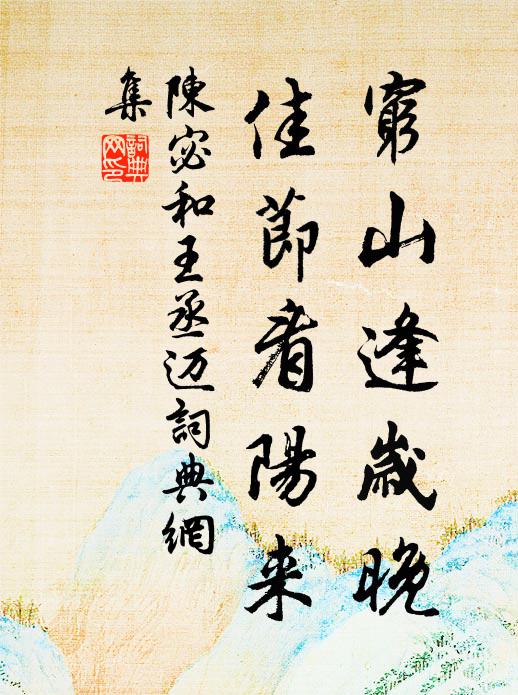 窮山逢歲晚
佳節看陽来
陳宓和王丞迈詞典網
集
詞典
网印